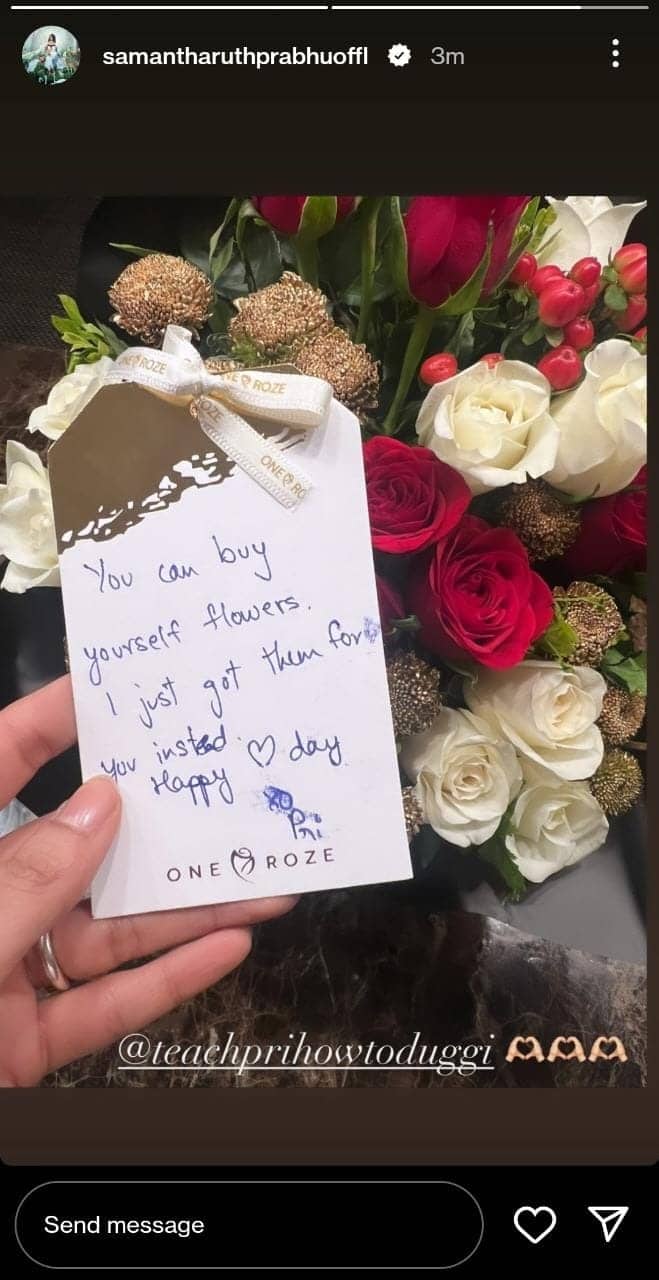 samantharuthprabhuoffl 3m
ONE ROZE
ONE ROZE
ONE RO
You can buy
yourself flowers.
I just got them for
you instead.
Happy ♡ day
Pri
ONE ROZE
@teachprihowtoduggi 🫶🏻🫶🏻🫶🏻
Send message